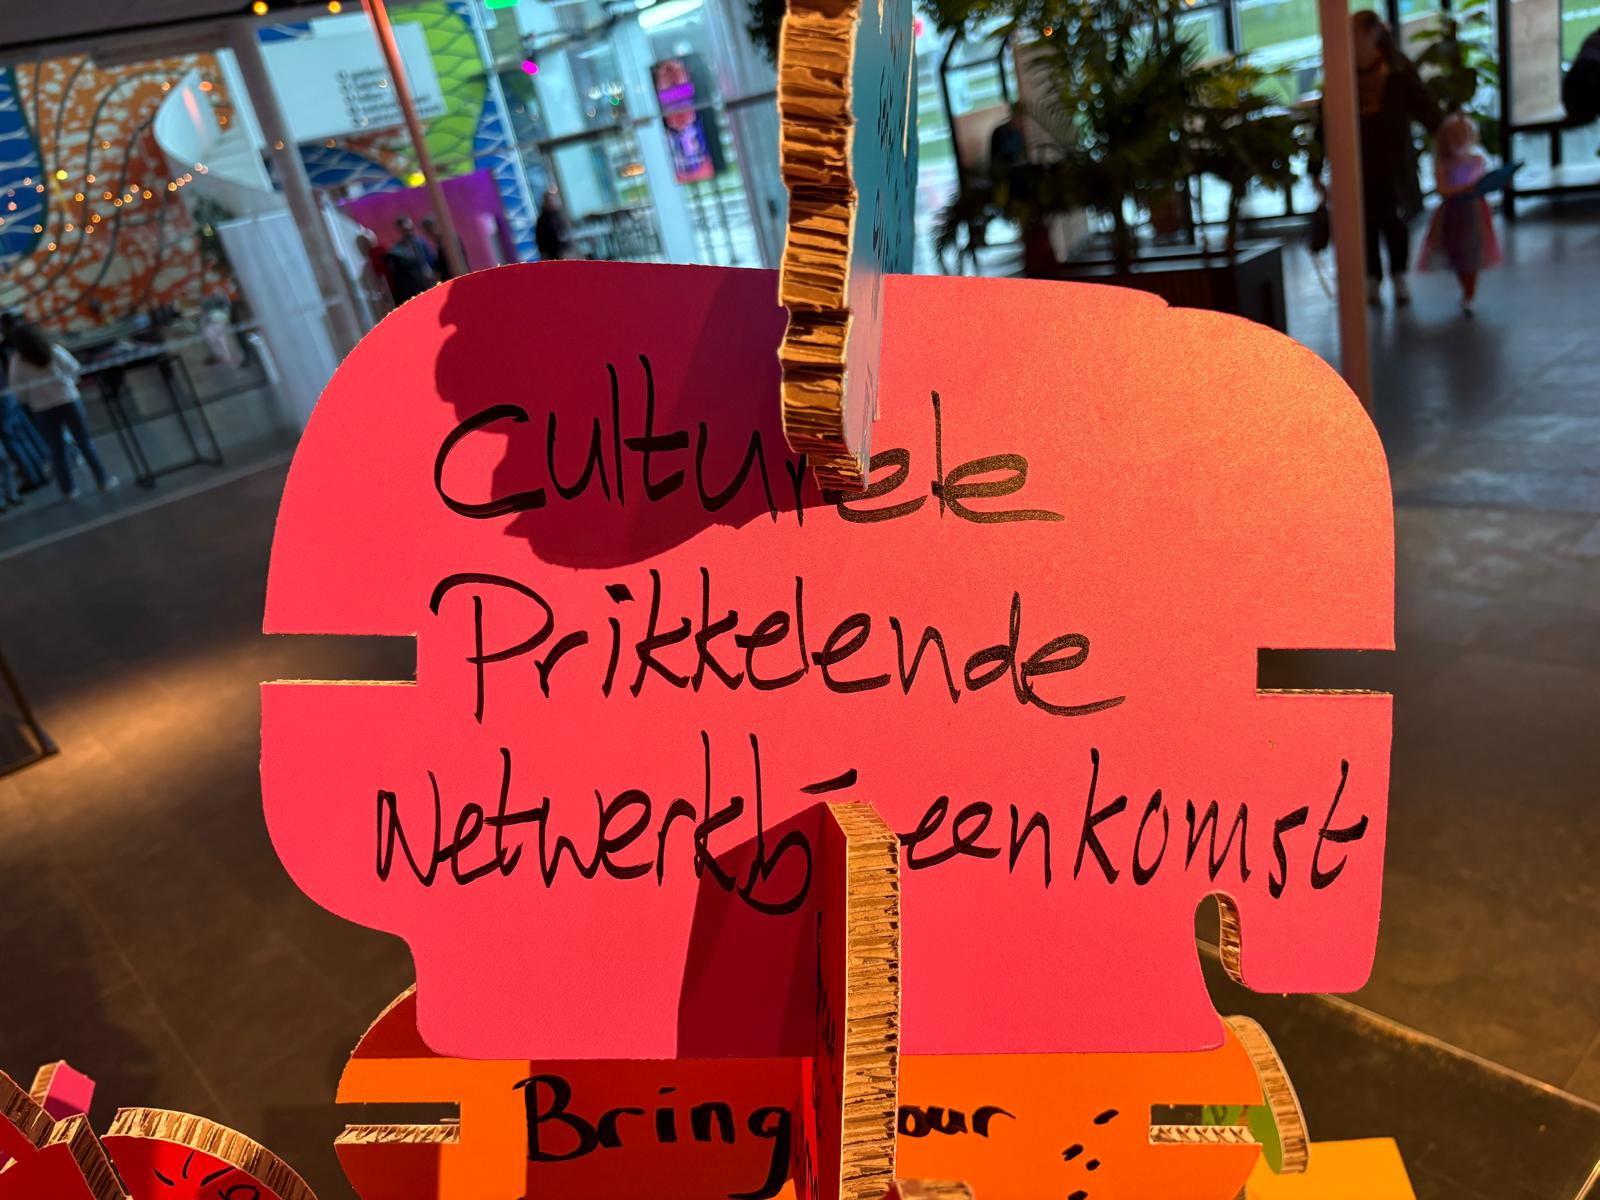 Culturele
Prikkelende
Netwerkbijeenkomst
Bring